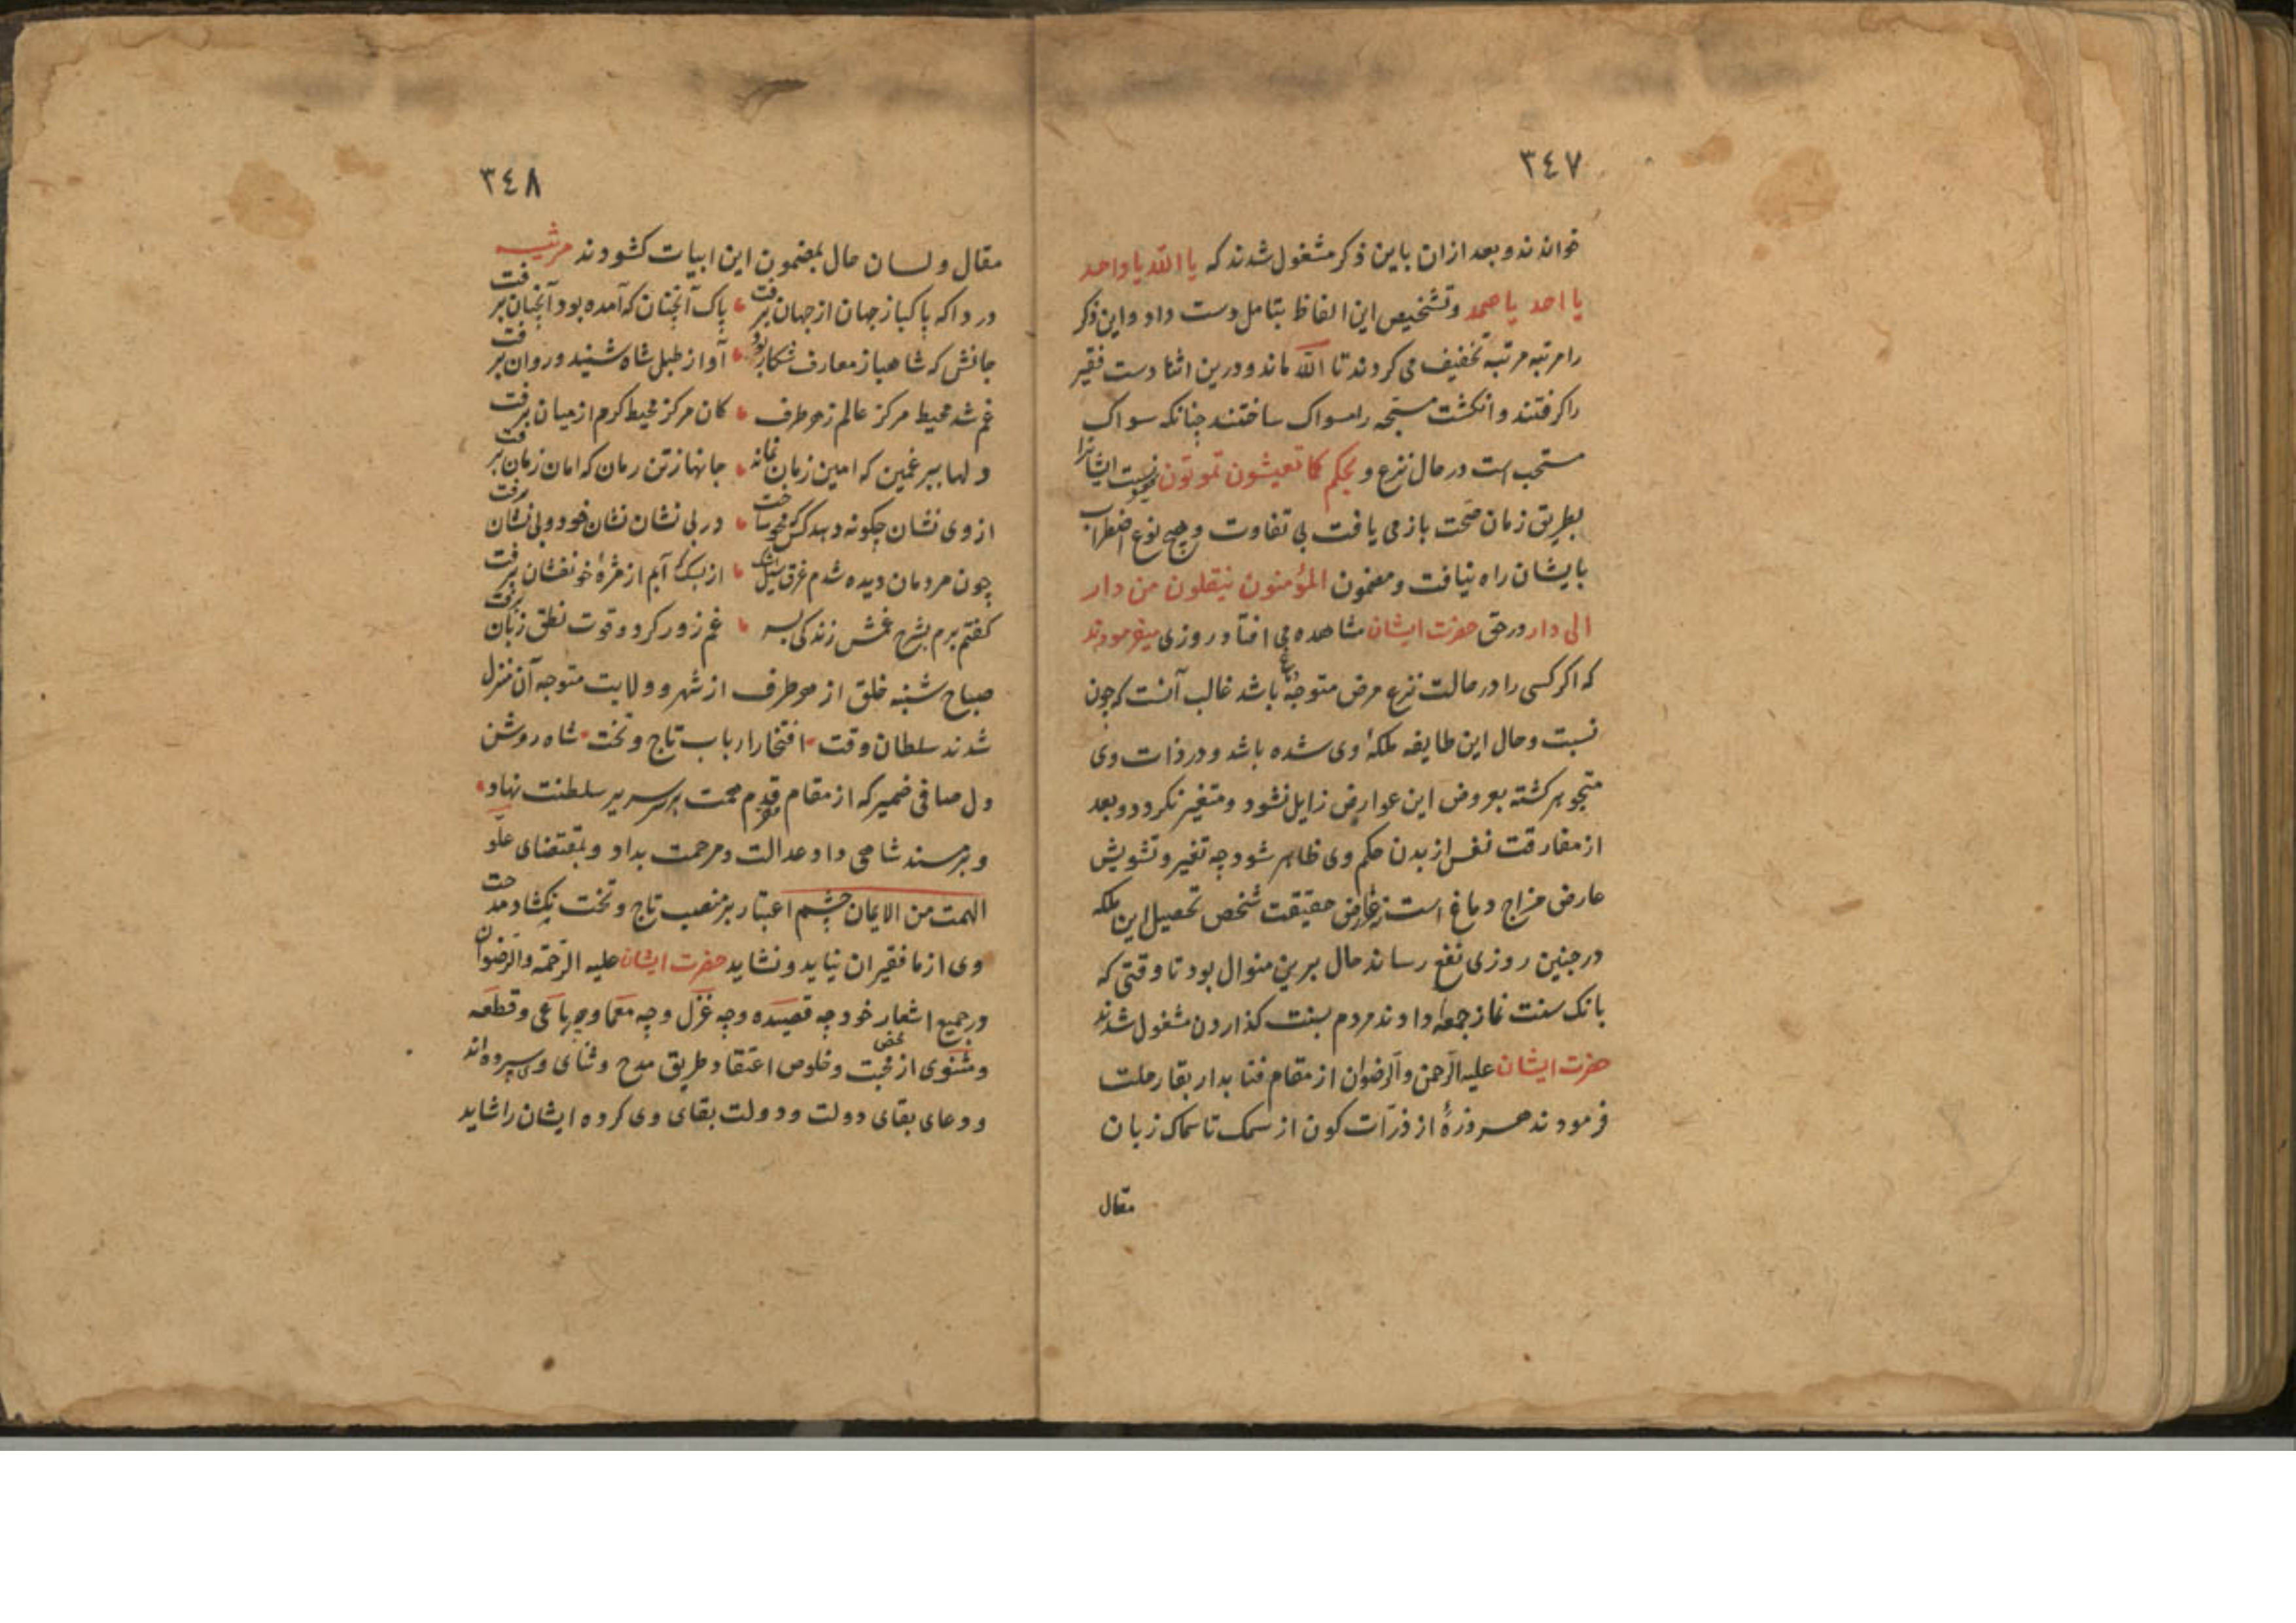 ٣٤٧
خواندند و بعد ازان باین ذکر مشغول شدند که یا الله یا واحد
یا احد یا صمد وتشخیص این الفاظ بتامل دست داد واین ذکر
را مرتبه مرتبه تخفیف می کردند تا الله ماند ودرین اثنا دست فقیر
را کرفتند و انکشت مسبّحه را مسواک ساختند چنانکه مسواک
مستحب است در حال نزع و بحکم کما تعیشون تموتون ایشانرا
بطریق زمان صحت باز می یافت بی تفاوت وهیچ نوع اضطراب
بایشان راه نیافت ومضمون المؤمنون ینقلون من دار
الی دار در حق حضرت ایشان مشاهده می افتاد روزی میفرمودند
که اکر کسی را در حالت نزع مرض متوجه باشد غالب آنست که چون
نسبت وحال این طایفه ملکهٔ وی شده باشد ودر ذات وی
متجوهر کشته بعروض این عوارض زایل نشود ومتغیر نکردد وبعد
از مفارقت نفس از بدن حکم وی ظاهر شود چه تغیر وتشویش
عارض مزاج دماغ است نه عارض حقیقت شخص تحصیل این ملکه
در چنین روزی نفع رساند حال برین منوال بود تا وقتی که
بانک سنت نماز جمعه دادند مردم بسنت کذاردن مشغول شدند
حضرت ایشان علیه الرحمن والرضوان از مقام فنا بدار بقا رحلت
فرمودند هر ذرهٔ از ذرّات کون از سمک تا سماک زبان
مقال
٣٤٨
مقال ولسان حال بمضمون این ابیات کشودند مرثیه
دردا که پاکباز جهان از جهان برفت پاک آنچنان که آمده بود آنچنان برفت
جانش که شاهباز معارف شکار بود آواز طبل شاه شنید و روان برفت
غم شد محیط مرکز عالم ز هر طرف کان مرکز محیط کرم از میان برفت
دلها ببر غمین که امین زمان نماند جانها ز تن رمان که امان زمان برفت
از وی نشان چکونه دهد کس در بی نشان نشان خود و بی نشان برفت
چون مردمان دیده شدم غرق از بسکه آبم از مژهٔ خونفشان برفت
کفتم برم بشرح غمش زندکی بسر غم زور کرد و قوت نطق زبان برفت
صباح شنبه خلق از هر طرف از شهر وولایت متوجه آن منزل
شدند سلطان وقت افتخار ارباب تاج وتخت شاه روشن
دل صافی ضمیر که از مقام قدم محمت بر سریر سلطنت نهاد
و بر مسند شاهی داد عدالت ومرحمت بداد وبمقتضای علوّ
الهمت من الایمان چشم اعتبار بر منصب تاج وتخت نکشاد مدحت
وی از ما فقیران نیاید ونشاید حضرت ایشان علیه الرحمة والرضوان
در جمیع اشعار خود چه قصیده وچه غزل وچه معما وچه رباعی وقطعه
ومثنوی از محض محبت وخلوص اعتقاد طریق مدح وثنای وی سپرده اند
ودعای بقای دولت ودولت بقای وی کرده ایشان را شاید